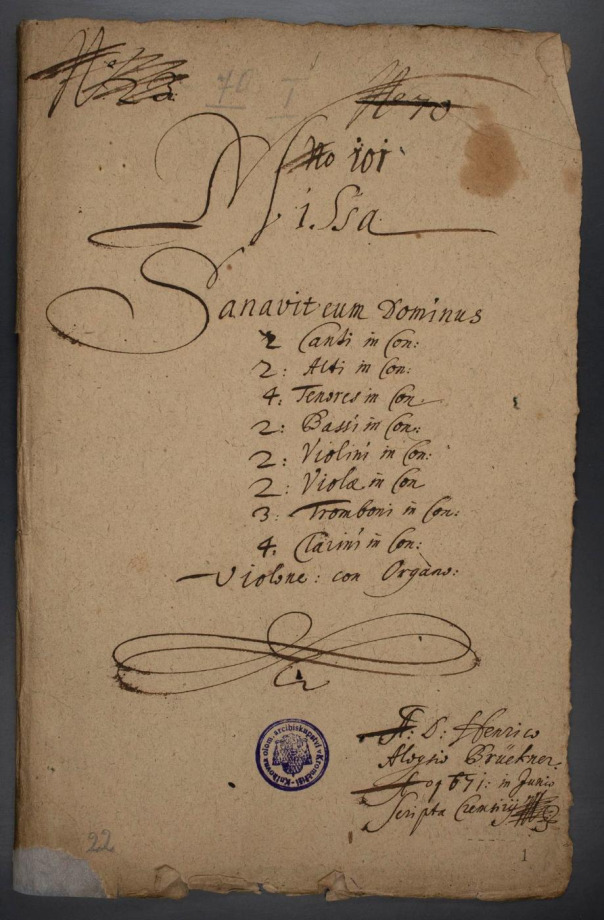 70 I
No 70
No 101
Missa
Sanavit eum Dominus
2 Canti in Con:
2: Alti in Con:
4: Tenores in Con
2: Bassi in Con:
2: Violini in Con:
2: Violæ in Con
3: Tromboni in Con:
4. Clarini in Con:
Violone: con Organo:
A: D: Henrico
Aloysio Brüekner.
Ao 1671: in Junio
Scripta Cremsirij
Knihovna olom. arcibiskupství v Kroměříži
22
1